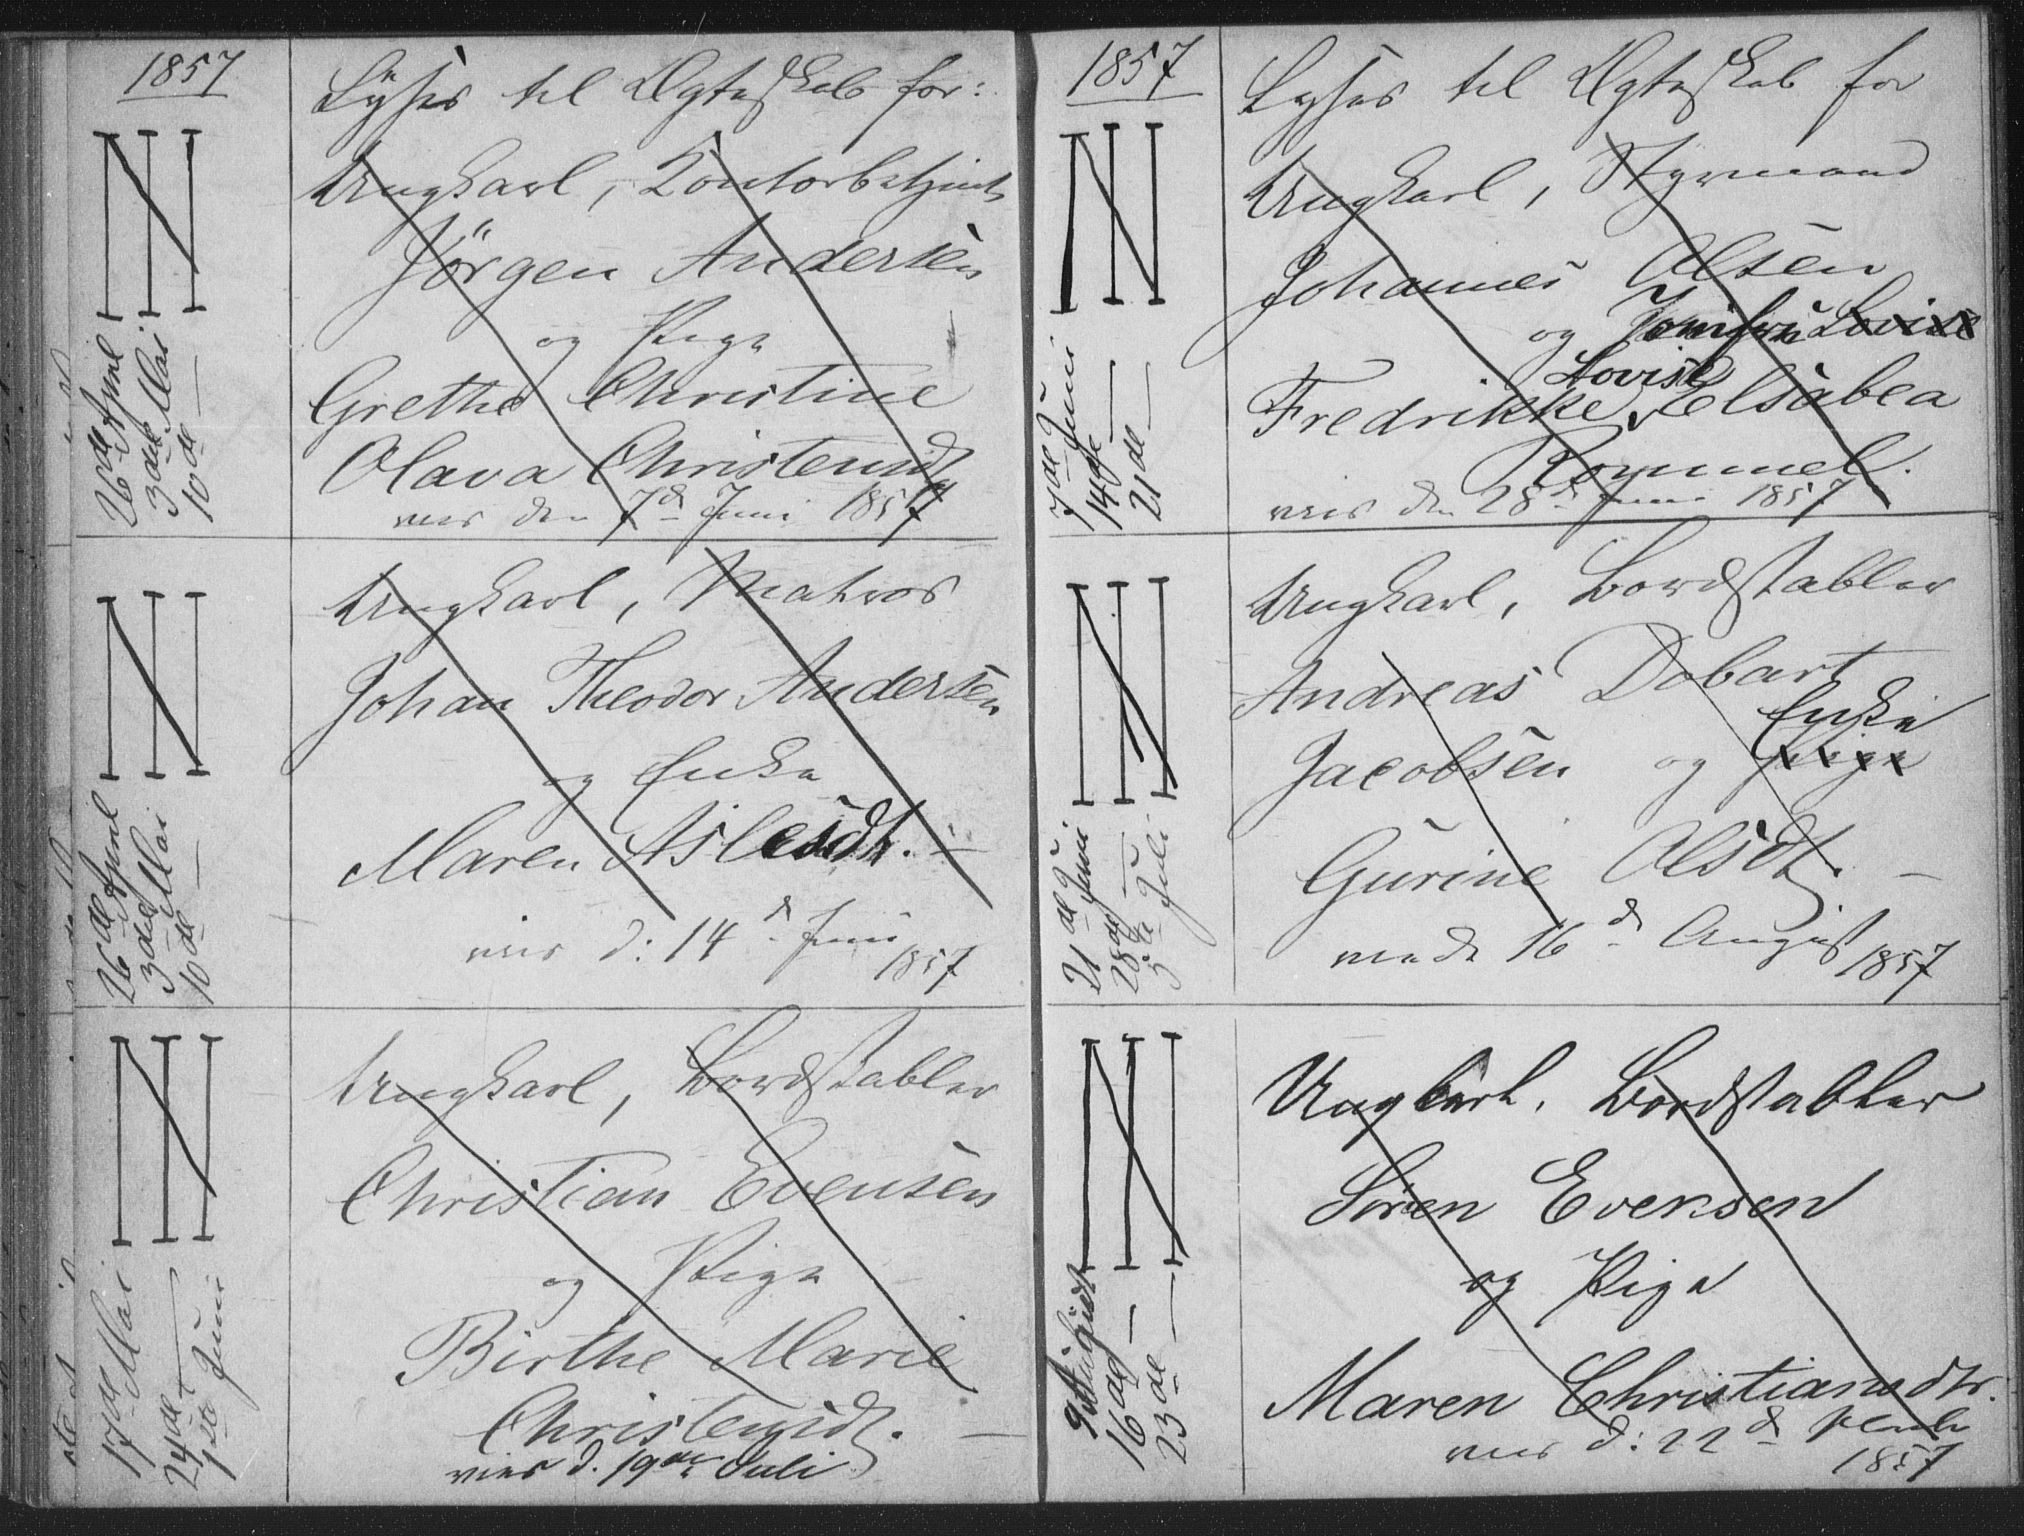 1857
Lyses til Ægteskab for:
Ungkarl, Kontorbetjent
Jörgen Andersen
og Pige
Grethe Christine
Olava Christensdt
viet den 7de Juni 1857
26de April
3die Mai
10de —
Ungkarl, Matros
Johan Theodor Andersen
og Enke
Maren Aslesdt. —
viet d: 14de Juni
1857
26de April
3die Mai
10de —
Ungkarl, Bordstabler
Christian Evensen
og Pige
Birthe Marie
Christensdt. —
viet d. 19de Juli
17de Mai
24de —
1ste Juni
1857
Lyses til Ægteskab for
Ungkarl, Styrmand
Johannes Olsen
og Jomfru Lovise
Lovise
Fredrikke Elsabea
Rommel.
viet den 28de Juni 1857
7de Juni
14de —
21de —
Ungkarl, Bordstabler
Andreas Dobart
Enke
Jacobsen og Pige
Gurine Olsdt. —
16de August 1857
21de Juni
28de —
5te Juli
Ungkarl, Bordstabler
Sören Evensen
og Pige
Maren Christiansdtr.
viet d: 22de
1857
9de August
16de —
23de —